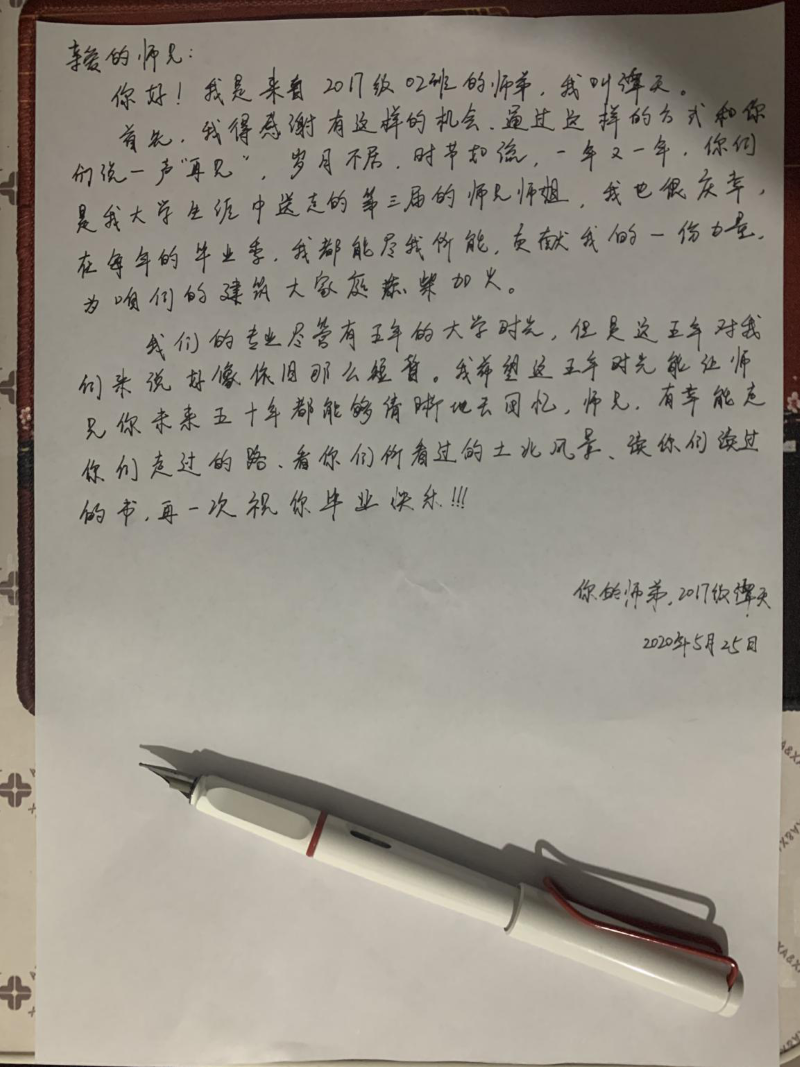 亲爱的师兄：
你好！我是来自2017级02班的师弟，我叫谭天。
首先，我得感谢有这样的机会、通过这样的方式和你
们说一声“再见”，岁月不居，时节如流，一年又一年，你们
是我大学生涯中送走的第三届的师兄师姐，我也很庆幸，
在每年的毕业季，我都能尽我所能，贡献我的一份力量，
为咱们的建筑大家庭添柴加火。
我们的专业尽管有五年的大学时光，但是这五年对我
们来说好像依旧那么短暂。我希望这五年时光能让师
兄你未来五十年都能够清晰地去回忆，师兄，有幸能走
你们走过的路、看你们所看过的土北风景、读你们读过
的书，再一次祝你毕业快乐!!!
你的师弟，2017级谭天
2020年5月25日
XA&XA